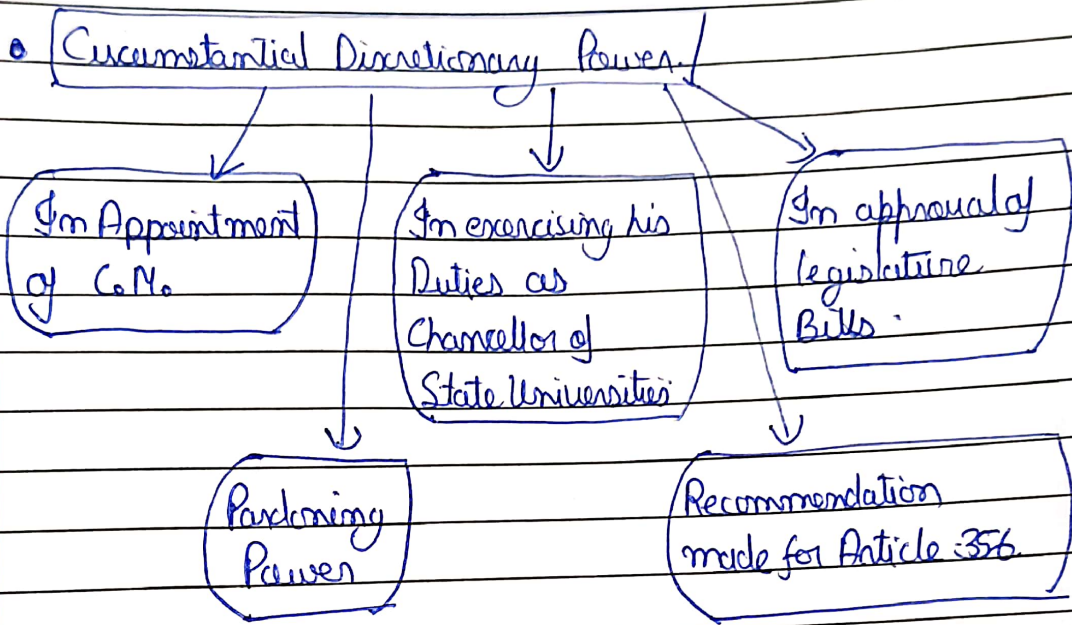 Circumstantial Discretionary Power
In Appointment
of C.M.
In exercising his
Duties as
Chancellor of
State Universities
In approval of
legislature
Bills.
Pardoning
Power
Recommendation
made for Article :356.